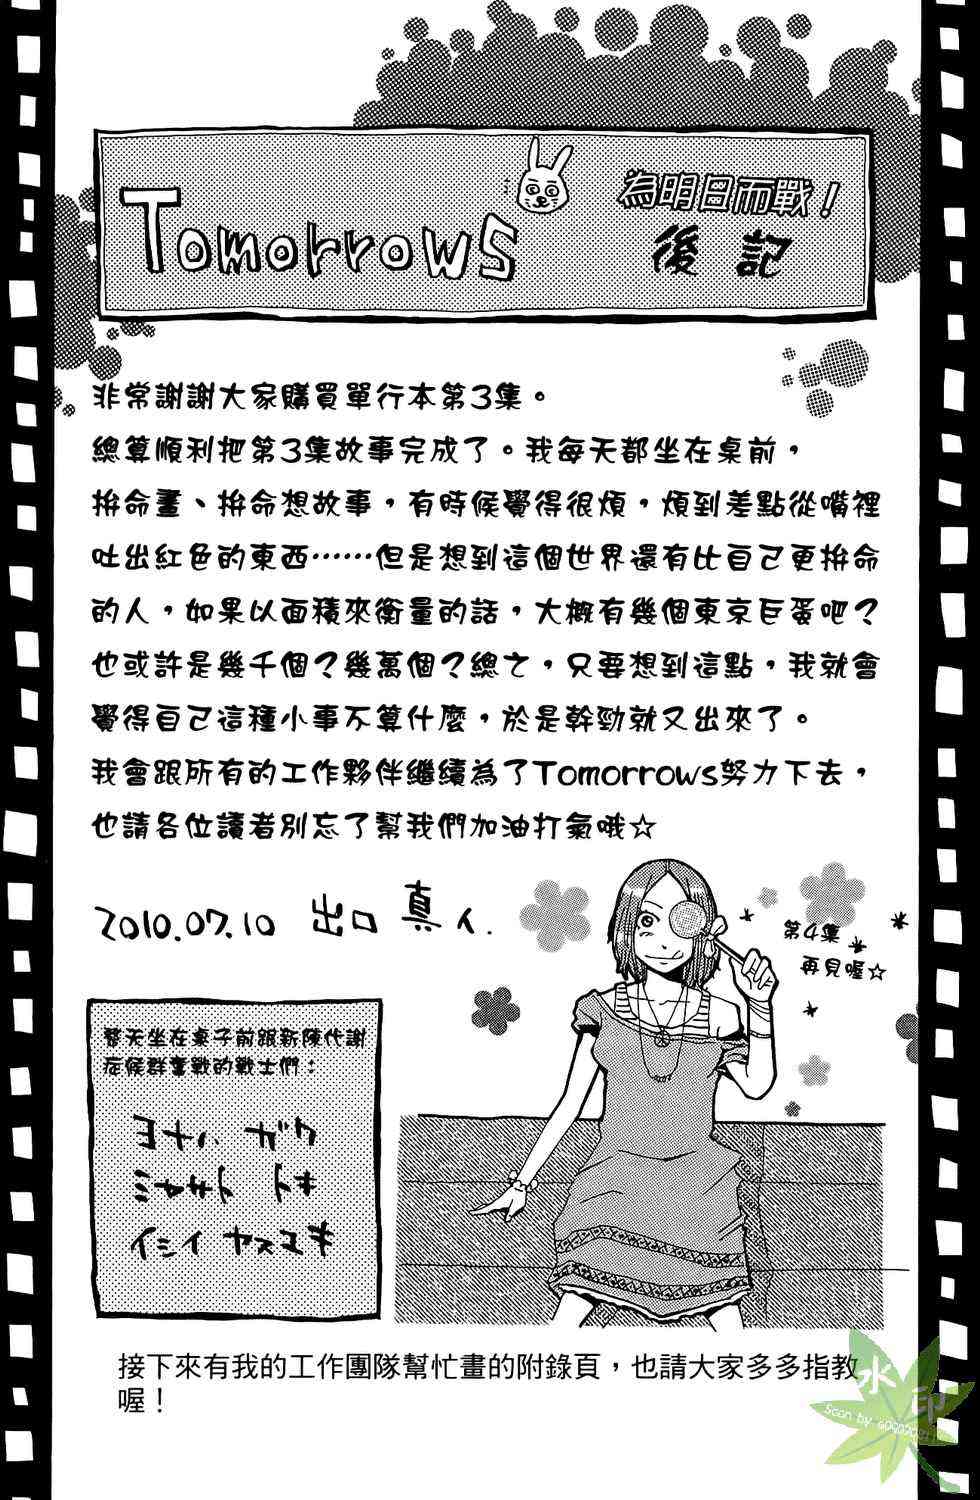 Tomorrows
為明日而戰！
後記
非常謝謝大家購買單行本第3集。
總算順利把第3集故事完成了。我每天都坐在桌前，
拚命畫、拚命想故事，有時候覺得很煩，煩到差點從嘴裡
吐出紅色的東西……但是想到這個世界還有比自己更拚命
的人，如果以面積來衡量的話，大概有幾個東京巨蛋吧？
也或許是幾千個？幾萬個？總之，只要想到這點，我就會
覺得自己這種小事不算什麼，於是幹勁就又出來了。
我會跟所有的工作夥伴繼續為了Tomorrows努力下去，
也請各位讀者別忘了幫我們加油打氣哦☆
2010.07.10 出口 真人.
第4集
再見喔☆
整天坐在桌子前跟新陳代謝
症候群奮戰的戰士們：
ヨナハ ガク
ミヤサト トキ
イシイ ヤスユキ
接下來有我的工作團隊幫忙畫的附錄頁，也請大家多多指教
喔！
水印
Scan by